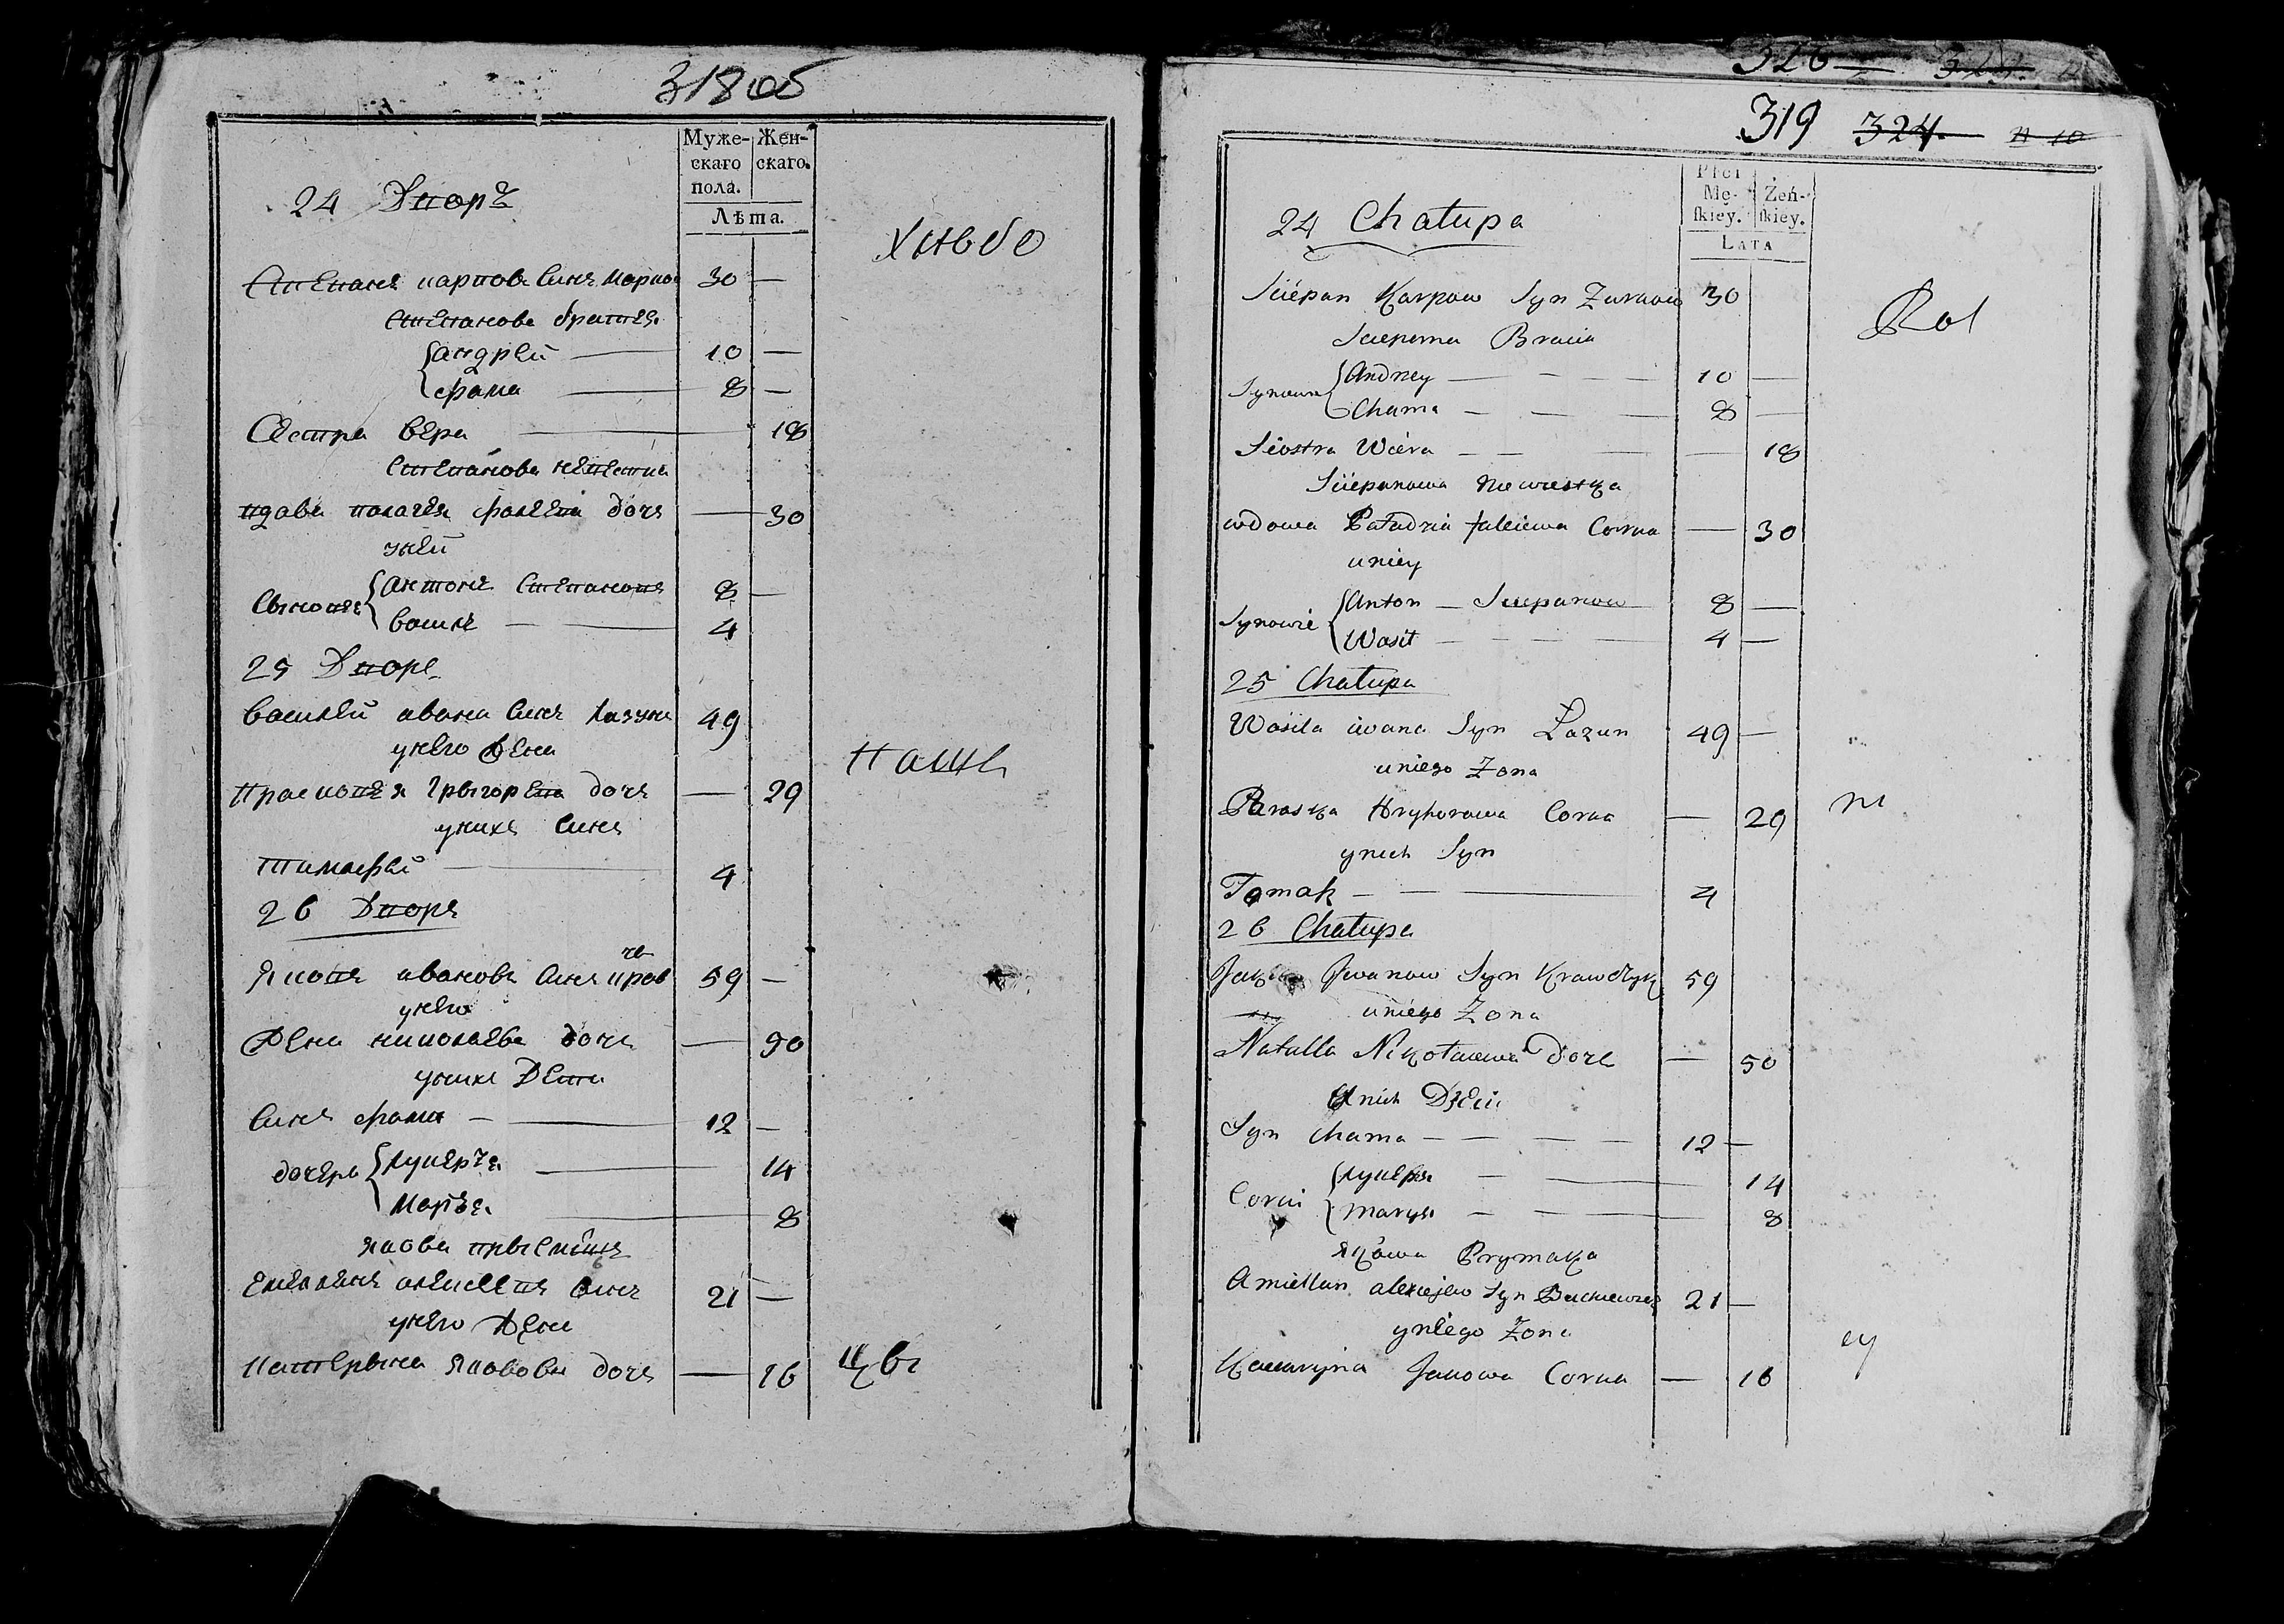 318 об
Муже-
скаго
пола.
Жен-
скаго.
Лѣта.
24 Дворъ
хлебо
Степанъ карповъ Синъ 30 —
Степанова братья
андрей — 10 —
фама — 8 —
Сестра вера — 18
Степанова невестка
вдава палагея фалеева дочъ — 30
унеи
Сыновъя антонъ Степановъ 8 —
василь — 4
25 Дворъ
василей ивана Синъ Лазунъ 49
унего Жена
пашн
прасковъя грыгорева дочъ — 29
унихъ Синъ
тимафей — 4
26 Дворъ
Яковъ ивановъ Синъ кравче 59 —
унего
Жена николаева дочъ — 50
унихъ Дети
Синъ фама — 12 —
дочеръ лукеръя — 14
Маръя — 8
якова
емелянъ алексеевъ Синъ 21 —
унего Жена
катерына яковова дочъ — 16
цы
326
319 324 н 10
Płci
Mę-
ſkiey.
Żeń-
ſkiey.
LATA
24 Chałupa
Rol
Sciepan Karpow Syn 30
Sciepana Bracia
Synowie Andrey — 10 —
Chama — 8 —
Siostra Wiera — 18
Sciepanowa Niewiestka
wdowa faleiewa Corka — 30
uniey
Synowie Anton — Sciepanow 8 —
Wasil — 4 —
25 Chałupa
Wasila iwana Syn Łazun 49 —
uniego Zona
ni
Paraska Hryhorowa Corka — 29
ynich Syn
Tomak — 4
26 Chałupa
Jak Jwanow Syn Krawczyk 59
uniego Zona
Natalla Nikołaiewa дочъ — 50
Unich Dzieci
Syn Chama — 12 —
Corki лукеръя — 14
Marya — 8
Якowa Prymaka
Amiellan alexiejew Syn 21 —
yniego Zona
ey
Kacaryna Jakowa Corka — 16